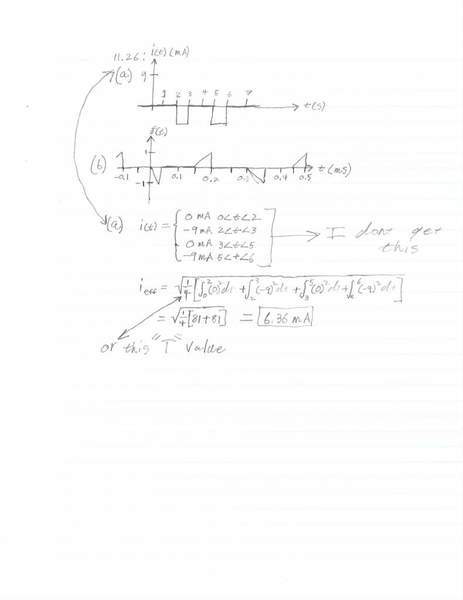 11.26: i(t) (mA)
(a) 9
1 2 3 4 5 6 7 t(s)
f(t)
(b) 1
-0.1 0 0.1 0.2 0.3 0.4 0.5 t(ms)
-1
(a) i(t) = { 0 mA 0<t<2
-9 mA 2<t<3
0 mA 3<t<5
-9 mA 5<t<6
I dont get this
i eff = √1/4[∫₀²(0)²dt + ∫₂³(-9)²dt + ∫₃⁵(0)²dt + ∫₅⁶(-9)²dt]
= √1/4[81+81] = 6.36 mA
or this "T" value